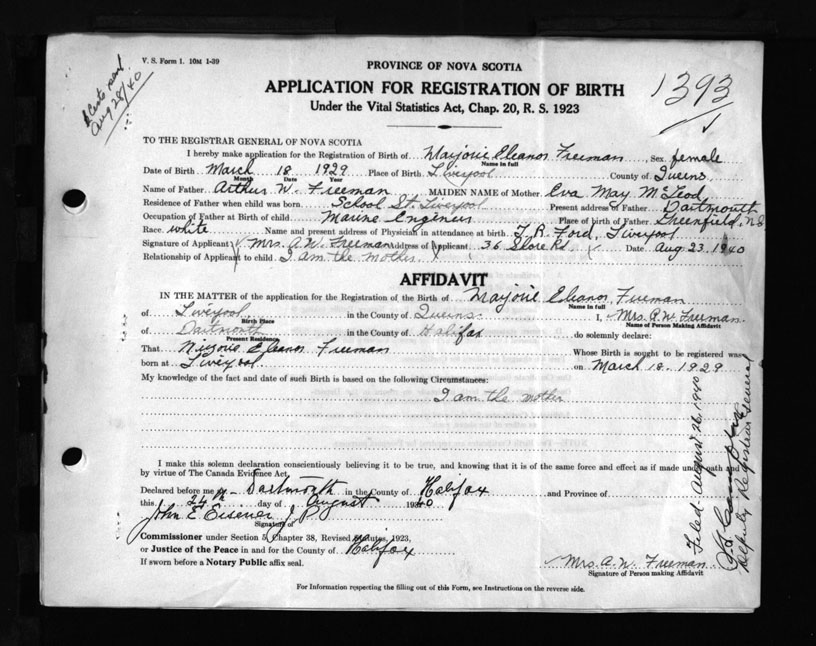 V. S. Form 1. 10M 1-39
Certs sent
Aug 28/40
PROVINCE OF NOVA SCOTIA
APPLICATION FOR REGISTRATION OF BIRTH
Under the Vital Statistics Act, Chap. 20, R. S. 1923
1393
TO THE REGISTRAR GENERAL OF NOVA SCOTIA
I hereby make application for the Registration of Birth of Marjorie Eleanor Freeman, Sex female
Name in full
Date of Birth March 18 1929 Place of Birth Liverpool County of Queens.
Month Date Year
Name of Father Arthur W. Freeman MAIDEN NAME of Mother Eva May McLeod
Residence of Father when child was born School St. Liverpool Present address of Father Dartmouth
Occupation of Father at Birth of child Marine Engineer Place of birth of Father Greenfield, N.S.
Race white Name and present address of Physician in attendance at birth F. R. Ford, Liverpool
Signature of Applicant Mrs. A. W. Freeman Address of Applicant 36 Shore Rd. Date Aug 23 1940
Relationship of Applicant to child I am the mother
AFFIDAVIT
IN THE MATTER of the application for the Registration of the Birth of Marjorie Eleanor Freeman
Name in full
of Liverpool in the County of Queens I, Mrs. A. W. Freeman
Birth Place Name of Person Making Affidavit
of Dartmouth in the County of Halifax do solemnly declare:
Present Residence
That Marjorie Eleanor Freeman Whose Birth is sought to be registered was
born at Liverpool on March 18. 1929
My knowledge of the fact and date of such Birth is based on the following Circumstances:
I am the mother
I make this solemn declaration conscientiously believing it to be true, and knowing that it is of the same force and effect as if made under oath and
by virtue of The Canada Evidence Act.
Declared before me at Dartmouth in the County of Halifax and Province of
this 24th day of August 1940
John E. Eisener J.P.
Signature of
Commissioner under Section 5, Chapter 38, Revised Statutes, 1923,
or Justice of the Peace in and for the County of Halifax
If sworn before a Notary Public affix seal.
Mrs. A. W. Freeman
Signature of Person making Affidavit
For Information respecting the filling out of this Form, see Instructions on the reverse side.
Filed August 26, 1940
Deputy Registrar General